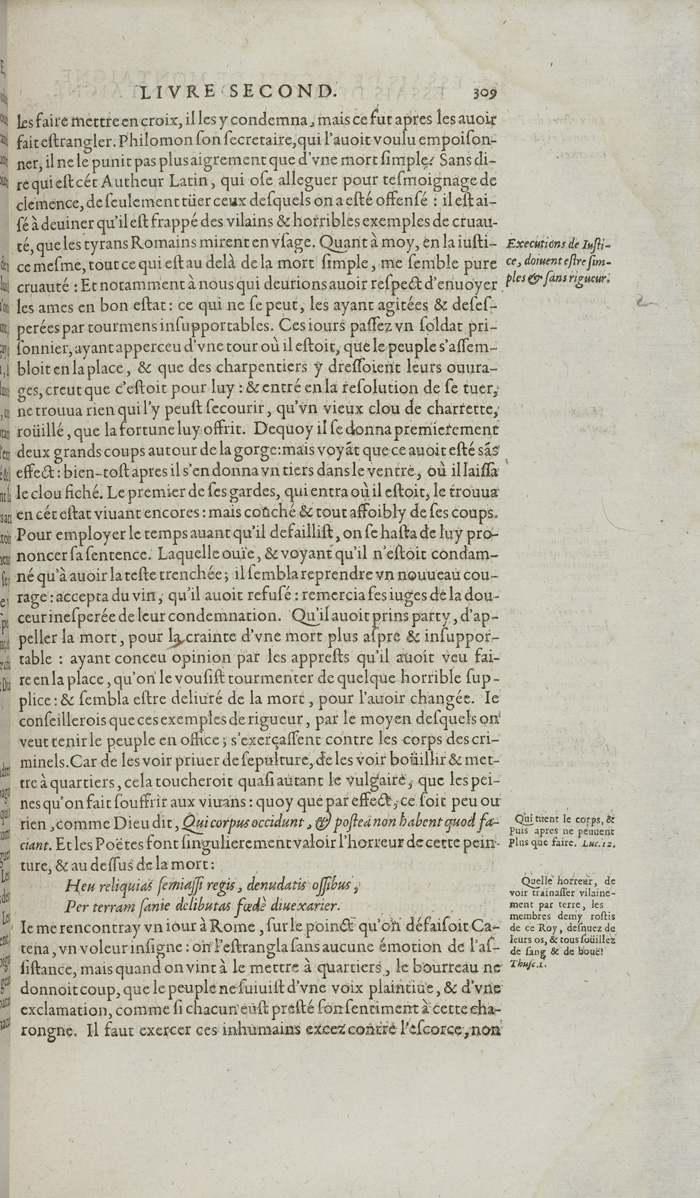 LIVRE SECOND. 309
les faire mettre en croix, il les y condemna, mais ce fut apres les auoir
fait eſtrangler. Philomon ſon ſecretaire, qui l'auoit voulu empoiſon-
ner, il ne le punit pas plus aigrement que d'vne mort ſimple. Sans di-
re qui eſt cét Autheur Latin, qui oſe alleguer pour teſmoignage de
clemence, de ſeulement tüer ceux deſquels on a eſté offenſé : il eſt ai-
ſé à deuiner qu'il eſt frappé des vilains & horribles exemples de cruau-
té, que les tyrans Romains mirent en vſage. Quant à moy, en la iuſti-
ce meſme, tout ce qui eſt au delà de la mort ſimple, me ſemble pure
cruauté : Et notamment à nous qui deurions auoir reſpect d'enuoyer
les ames en bon eſtat : ce qui ne ſe peut, les ayant agitées & deſeſ-
perées par tourmens inſupportables. Ces iours paſſez vn ſoldat pri-
ſonnier, ayant apperceu d'vne tour où il eſtoit, que le peuple s'aſſem-
bloit en la place, & que des charpentiers y dreſſoient leurs ouura-
ges, creut que c'eſtoit pour luy : & entré en la reſolution de ſe tuer,
ne trouua rien qui l'y peuſt ſecourir, qu'vn vieux clou de charrette,
roüillé, que la fortune luy offrit. Dequoy il ſe donna premierement
deux grands coups autour de la gorge: mais voyãt que ce auoit eſté sãs
effect: bien-toſt apres il s'en donna vn tiers dans le ventre, où il laiſſa
le clou fiché. Le premier de ſes gardes, qui entra où il eſtoit, le trouua
en cét eſtat viuant encores: mais couché & tout affoibly de ſes coups.
Pour employer le temps auant qu'il defailliſt, on ſe haſta de luy pro-
noncer ſa ſentence. Laquelle ouïe, & voyant qu'il n'eſtoit condam-
né qu'à auoir la teſte trenchée; il ſembla reprendre vn nouueau cou-
rage: accepta du vin, qu'il auoit refuſé: remercia ſes iuges de la dou-
ceur ineſperée de leur condemnation. Qu'il auoit prins party, d'ap-
peller la mort, pour la crainte d'vne mort plus aſpre & inſuppor-
table : ayant conceu opinion par les appreſts qu'il auoit veu fai-
re en la place, qu'on le vouſiſt tourmenter de quelque horrible ſup-
plice: & ſembla eſtre deliuré de la mort, pour l'auoir changée. Ie
conſeillerois que ces exemples de rigueur, par le moyen deſquels on
veut tenir le peuple en office; s'exerçaſſent contre les corps des cri-
minels. Car de les voir priuer de ſepulture, de les voir boüillir & met-
tre à quartiers, cela toucheroit quaſi autant le vulgaire, que les pei-
nes qu'on fait ſouffrir aux viuans: quoy que par effect, ce ſoit peu ou
rien, comme Dieu dit, Qui corpus occidunt, & poſteà non habent quod fa-
ciant. Et les Poëtes font ſingulierement valoir l'horreur de cette pein-
ture, & au deſſus de la mort:
Heu reliquias ſemiaſſi regis, denudatis oſſibus,
Per terram ſanie delibutas fœdè diuexarier.
Ie me rencontray vn iour à Rome, ſur le poinct qu'on défaiſoit Ca-
tena, vn voleur inſigne: on l'eſtrangla ſans aucune émotion de l'aſ-
ſiſtance, mais quand on vint à le mettre à quartiers, le bourreau ne
donnoit coup, que le peuple ne ſuiuiſt d'vne voix plaintiue, & d'vne
exclamation, comme ſi chacun euſt preſté ſon ſentiment à cette cha-
rongne. Il faut exercer ces inhumains excez contre l'eſcorce, non
Executions de Iuſti-
ce, doiuent eſtre ſim-
ples & ſans rigueur.
Qui tuent le corps, &
puis apres ne peuuent
plus que faire. Luc. 12.
Quelle horreur, de
voir trainaſſer vilaine-
ment par terre, les
membres demy roſtis
de ce Roy, deſnuez de
leurs os, & tous ſoüillez
de ſang & de bouë!
Thuſc. 1.